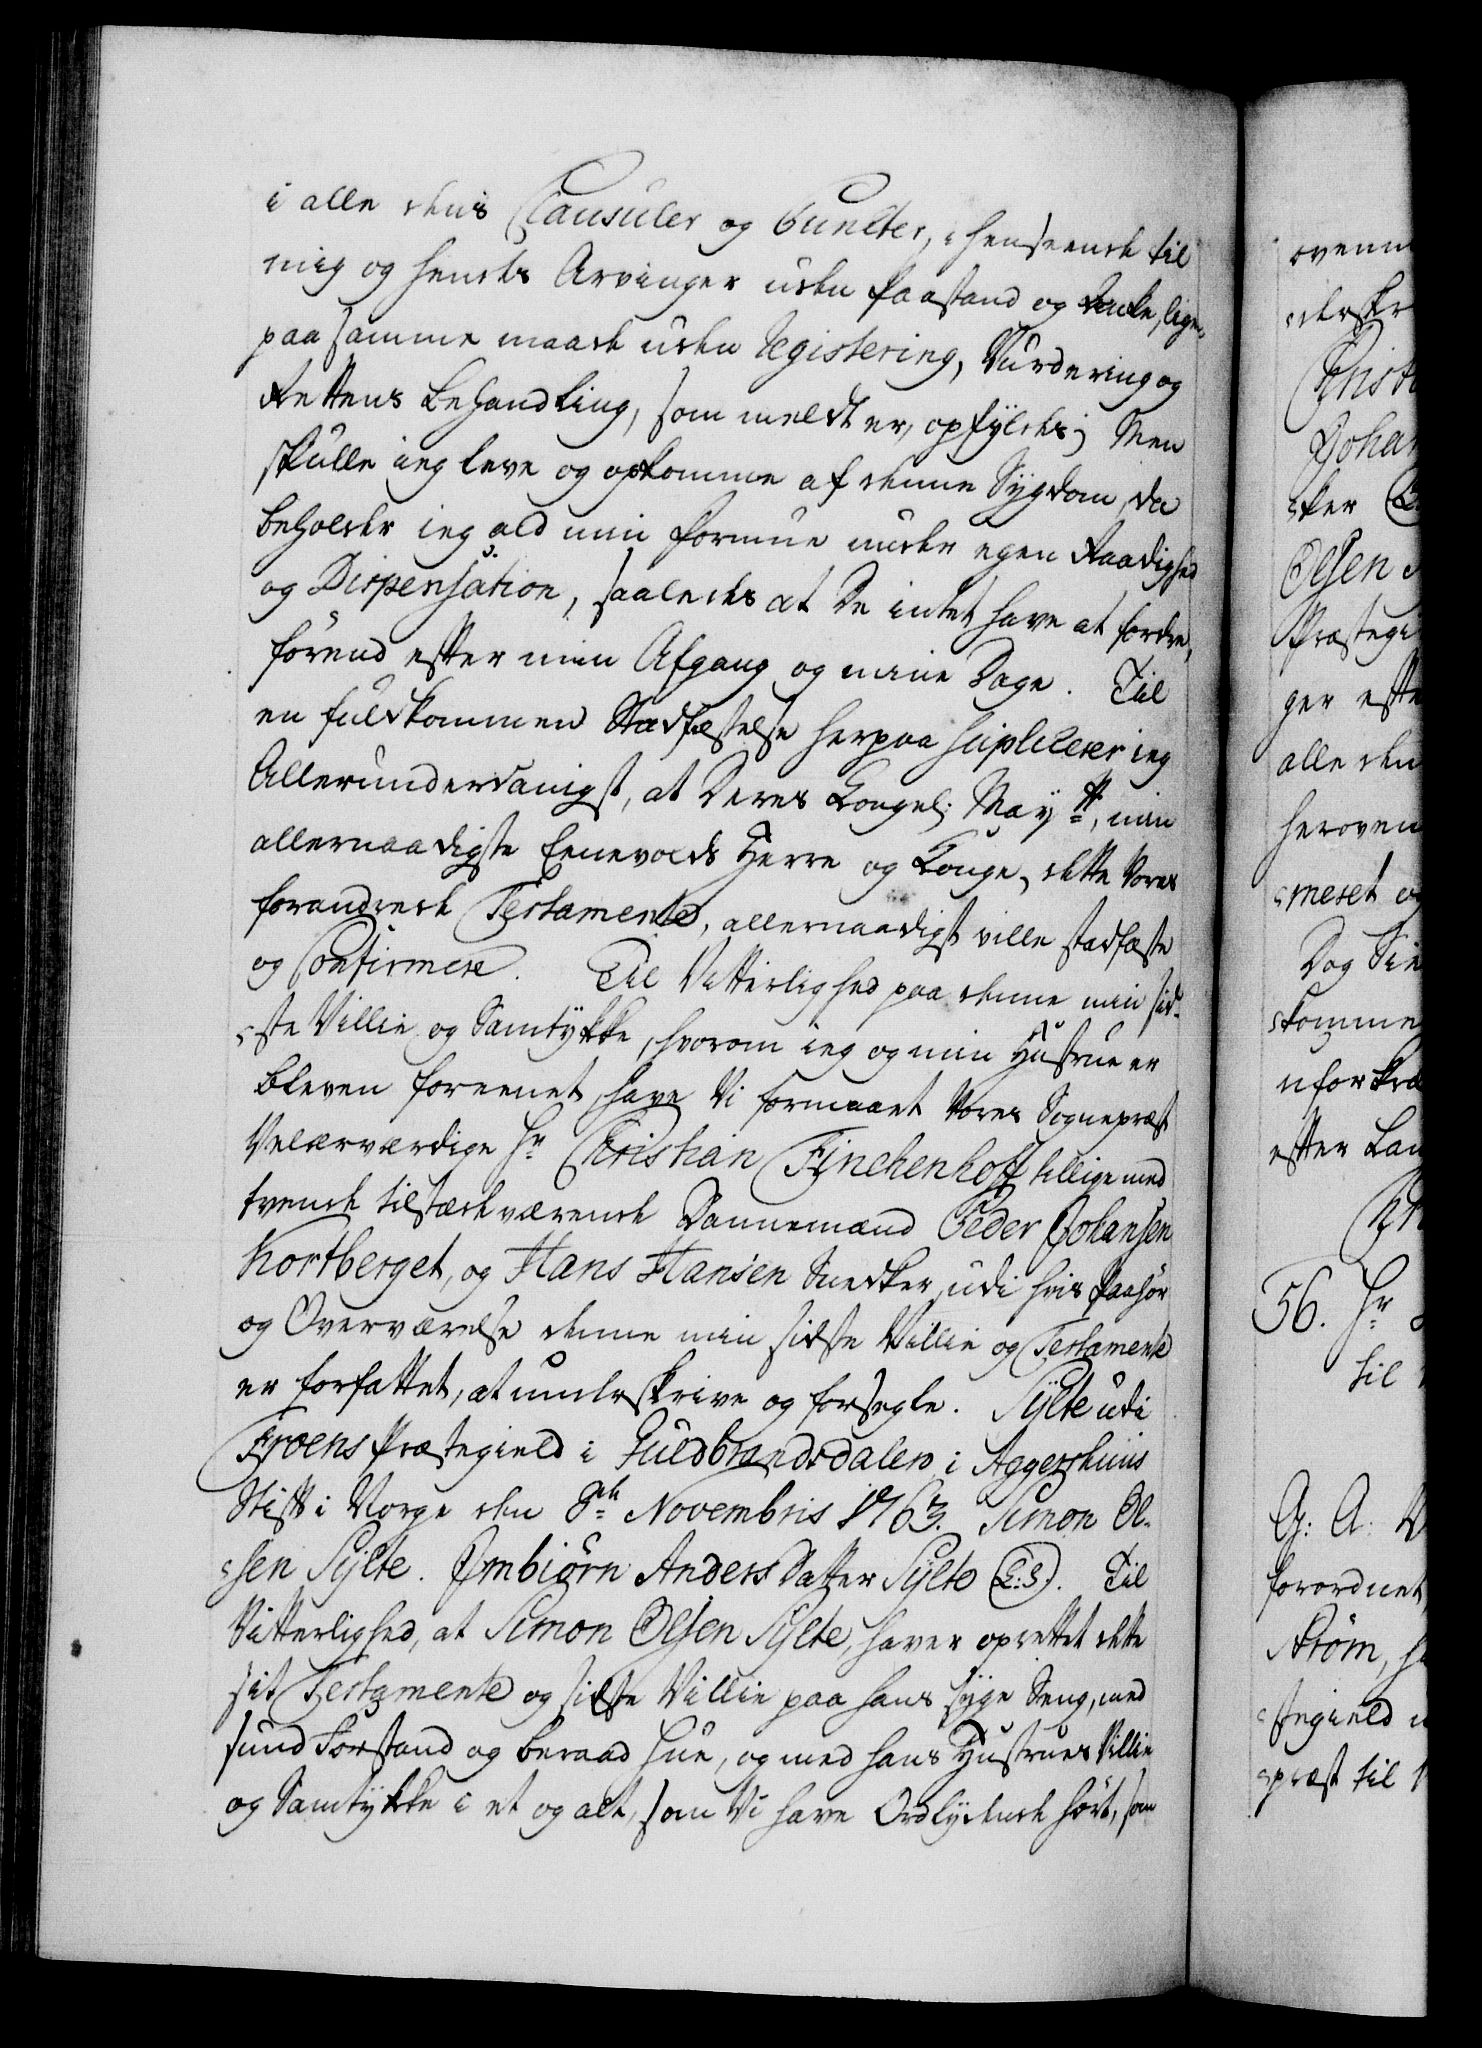 i alle dens Clausuler og Puncter, i henseende til
mig og hendes Arvinger uden Paastand og Anke, lige
paa samme maade uden Registering, Vurdering og
Rettens Behandling, som meldt er, opfyldes; Men
skulle ieg leve og opkomme af denne Sygdom, da
beholder ieg ald min Formue under egen Raadighed
og Dispensation, saaledes at De intet have at fordre,
förend efter min Afgang og mine Dage. Til
en fuldkommen Stadfæstelse herpaa supliceer ieg
Allerunderdanigst, at Deres Kongel: Maytt, min
allernaadigste Eenevolds Herre og Konge, dette Vores
forandrede Testamente, allernaadigst ville stadfæste
og Confirmere. Til Vitterlighed paa denne min sid-
ste Villie og Samtykke, hvorom ieg og min Hustrue er
bleven foreenet, have Vi formaaet Vores Sognepræst
Velærværdige Hr Christian Finchenhoff tillige med
tvende tilstædeværende Dannemænd Peder Johansen
Kortberget, og Hans Hansen Snedker, udi hvis Paahör
og Overværelse denne min sidste Villie og Testamente
er forfattet, at underskrive og forsegle. Sylte udi
Froens Præstegield i Guldbrandsdalen, i Aggershuus
Stift i Norge den 8de Novembris 1763. Simon Ol-
sen Sylte. Ømbiörn Anders Datter Sylte (L:S:). Til
Vitterlighed, at Simon Olsen Sylte, haver oprettet dette
sit Testamente og sidste Villie paa hans syge Seng, med
sund Forstand og beraad Hue, og med hans Hustrues Villie
og Samtykke i et og alt, som Vi have Ordlydende hört, som
ovenm
derskr
Christ
Johan
ker
Olsen
Præstegi
ger efte
alle den
heroven
meret og
Dog
komme
uforkræ
efter Lan
56. Hr
til
G: A: V
forordnet
Ström, h
stegield
præst til